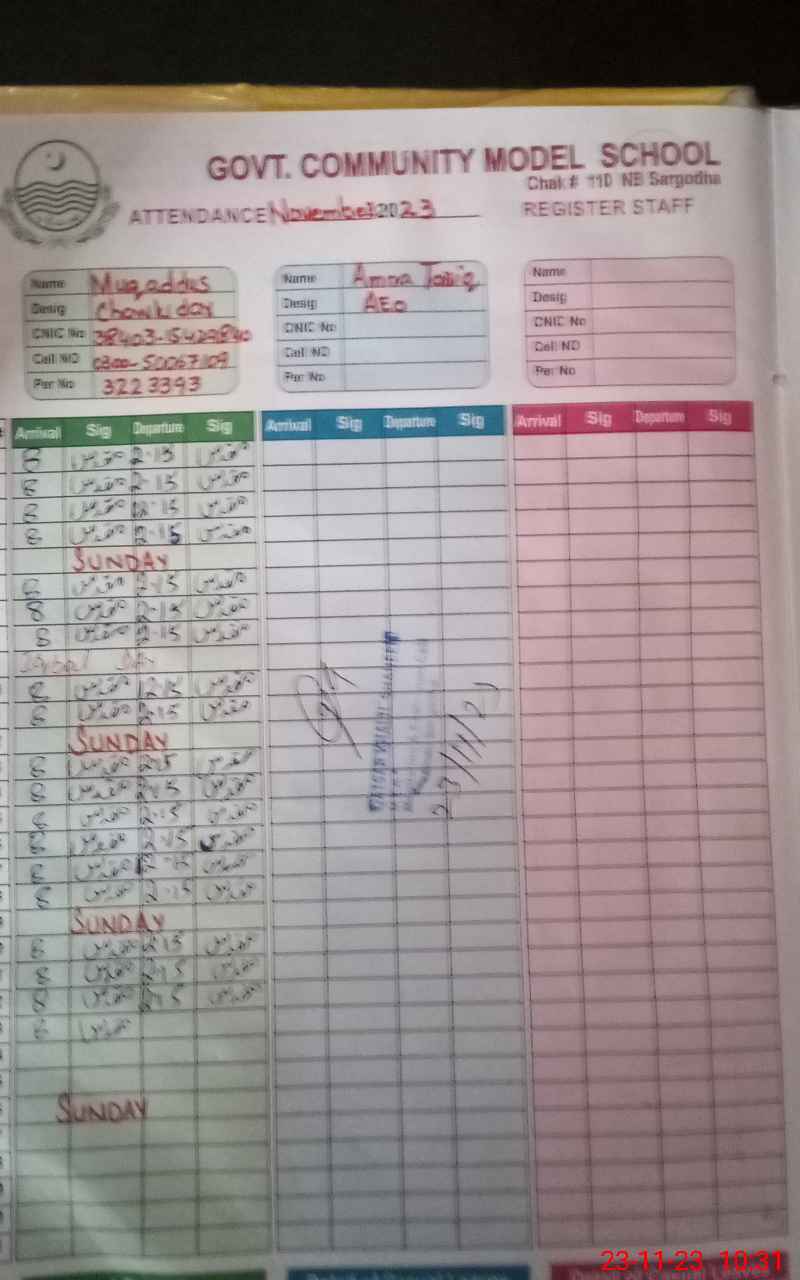 GOVT. COMMUNITY MODEL SCHOOL
Chak # 110 NB Sargodha
ATTENDANCE November 2023 REGISTER STAFF
Name Muqaddus Name Amna Tariq Name
Desig Chowkidar Desig AEO Desig
CNIC No 38403-15429840 CNIC No CNIC No
Cell NO 0300-5006709 Cell NO Cell NO
Per No 3223393 Per No Per No
Arrival Sig Departure Sig Arrival Sig Departure Sig Arrival Sig Departure Sig
8 مقدس 2-15 مقدس
8 مقدس 2-15 مقدس
8 مقدس 2-15 مقدس
8 مقدس 2-15 مقدس
SUNDAY
8 مقدس 2-15 مقدس
8 مقدس 2-15 مقدس
8 مقدس 2-15 مقدس
Iqbal Day
8 مقدس 12-15 مقدس
8 مقدس 2-15 مقدس
SUNDAY
8 مقدس 2-15 مقدس
8 مقدس 2-15 مقدس
8 مقدس 2-15 مقدس
8 مقدس 2-15 مقدس
8 مقدس 12-15 مقدس
8 مقدس 2-15 مقدس
SUNDAY
8 مقدس 2-15 مقدس
8 مقدس 2-15 مقدس
8 مقدس 2-15 مقدس
8 مقدس
SUNDAY
23-11-23 10:31